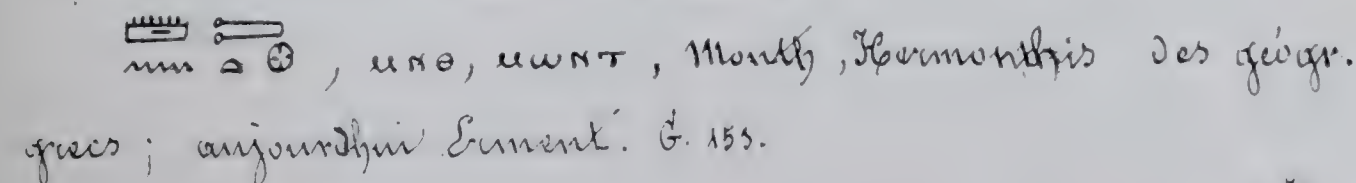 𓏠𓈖𓍿𓏏𓊖, ⲙⲛⲑ, ⲙⲱⲛⲧ, Month, Hermonthis des géogr.
grecs; aujourdhui Erment. G. 153.